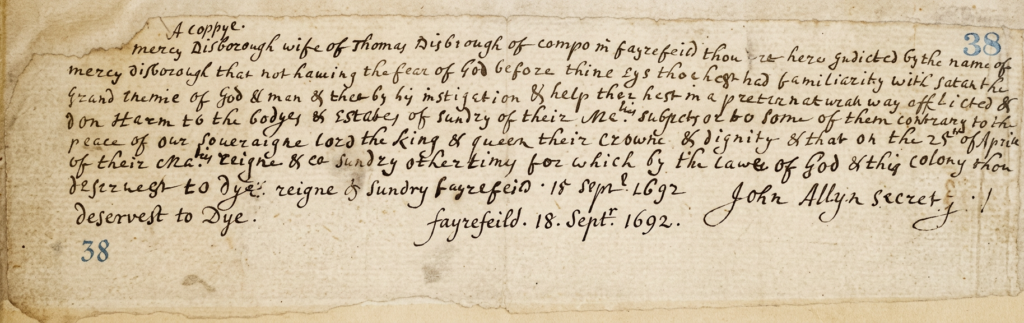 A coppye.
38
mercy Disborough wife of Thomas Disbrough of compo in fayrefeild thou re here Indicted by the name of
mercy disborough that not haueing the fear of God before thine Eys thou hast had familiarity with satan the
Grand Inemie of God & man & thee by his instigation & help thou hast in a preternaturall way afflicted &
don Harm to the bodyes & Estates of sundry of their Maties subjects or to some of them contrary to the
peace of our soueraigne lord the King & queen their crowne & dignity & that on the 25th of Aprill
of their Maties reigne & co sundry other times for which by the lawe of God & this colony thou
deservest to Dye. reigne & Sundry fayrefeild . 15 Septr. 1692
John Allyn secret
deservest to Dye.
fayrefeild. 18. Septr. 1692.
38